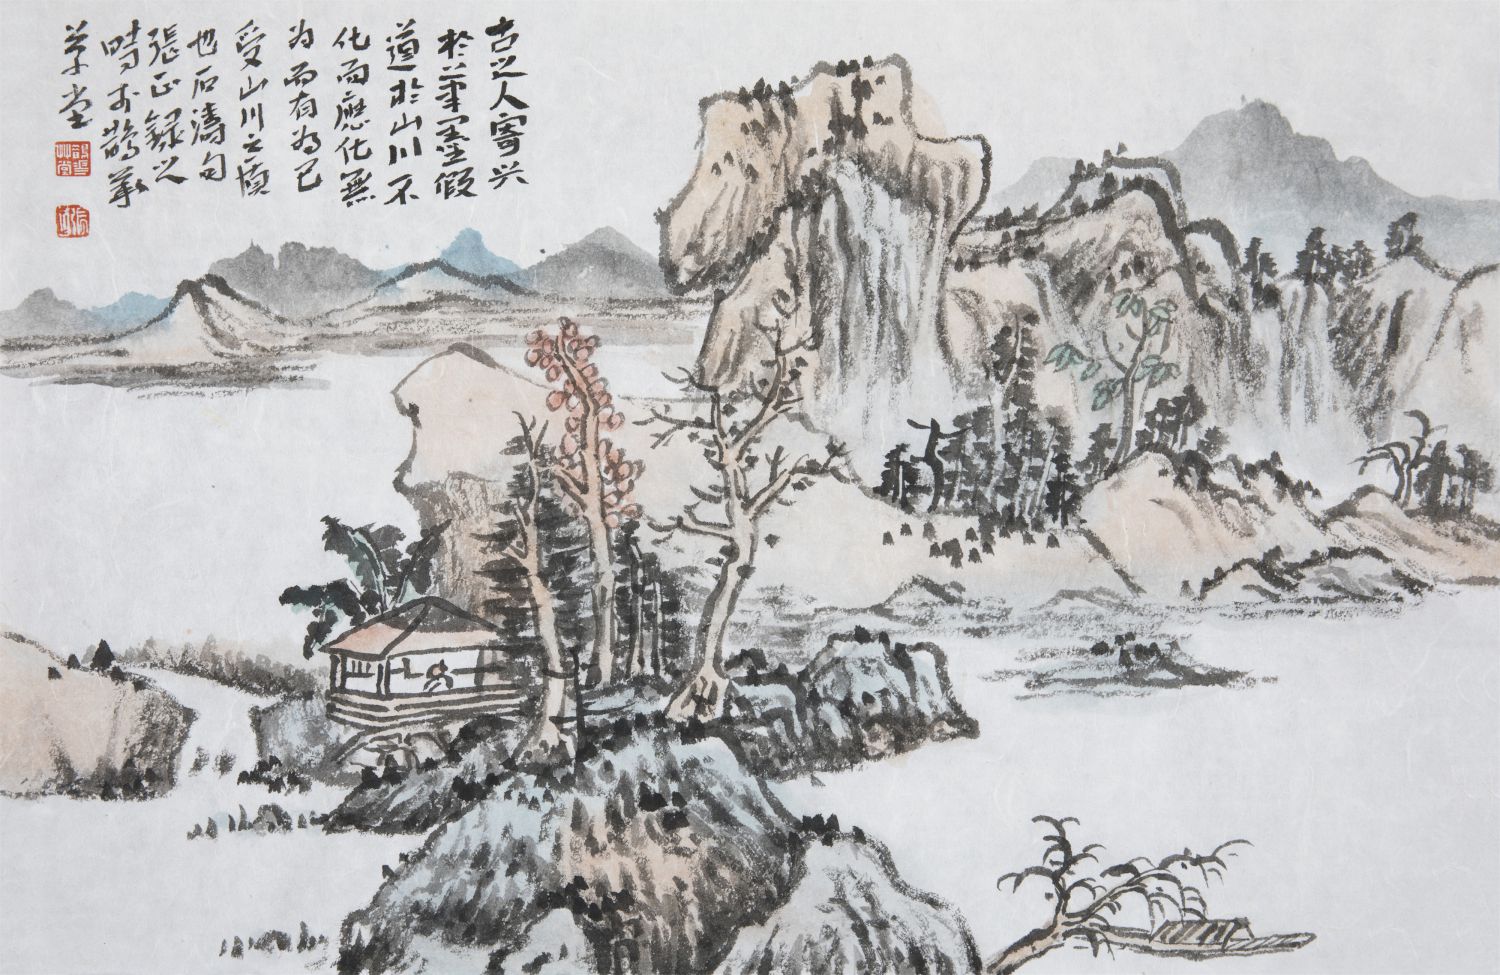 古之人寄兴
於筆墨假
道於山川不
化而應化無
为而有为已
受山川之質
也石濤句
張正錄之
時於鵲華
草堂